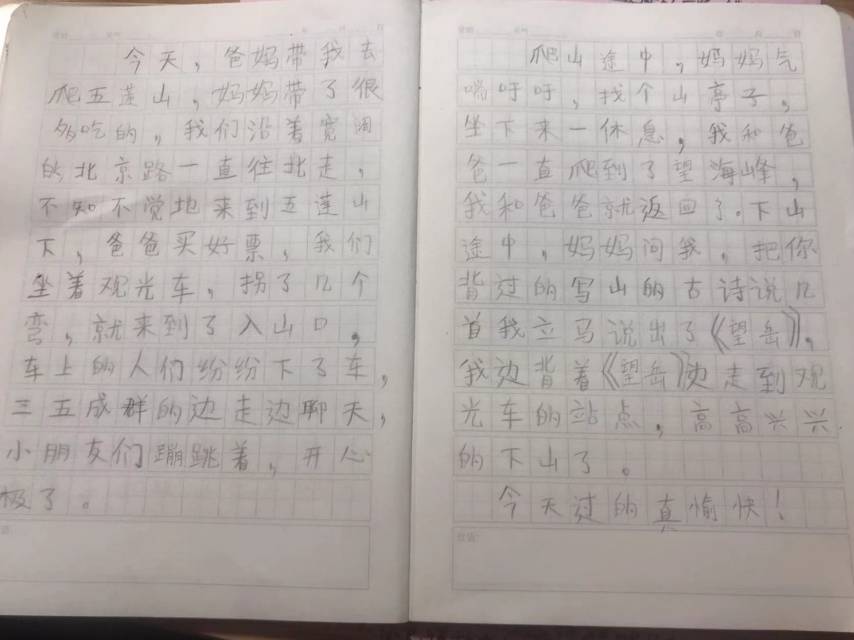 今天，爸妈带我去
爬五莲山，妈妈带了很
多吃的，我们沿着宽阔
的北京路一直往北走，
不知不觉地来到五莲山
下，爸爸买好票，我们
坐着观光车，拐了几个
弯，就来到了入山口，
车上的人们纷纷下了车，
三五成群的边走边聊天，
小朋友们蹦跳着，开心
极了。
爬山途中，妈妈气
喘吁吁，找个山亭子，
坐下来一休息，我和爸
爸一直爬到了望海峰，
我和爸爸就返回了.下山
途中，妈妈问我，把你
背过的写山的古诗说几
首我立马说出了《望岳》，
我边背着《望岳》边走到观
光车的站点，高高兴兴
的下山了。
今天过的真愉快！